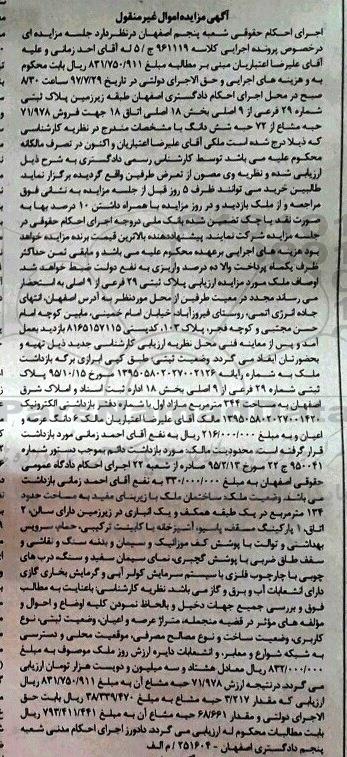 آگهی مزایده اموال غیر منقول
اجرای احکام حقوقی شعبه پنجم اصفهان در نظر دارد جلسه مزایده ای
در خصوص پرونده اجرایی کلاسه 961119 ج/5 له آقای احد زمانی و علیه
آقای علیرضا اعتباریان مبنی بر مطالبه مبلغ 831/750/911 ریال بابت محکوم
به و هزینه های اجرایی و حق الاجرای دولتی در تاریخ 97/7/29 ساعت 8/30
صبح در محل اجرای احکام دادگستری اصفهان طبقه زیرزمین پلاک ثبتی
شماره 29 فرعی از 9 اصلی بخش 18 اصلی اتاق 18 جهت فروش 71/978
حبه مشاع از 72 حبه شش دانگ با مشخصات مندرج در نظریه کارشناسی
که ذیلا درج شده است ملکی آقای علیرضا اعتباریان و اکنون در تصرف مالکانه
محکوم علیه می باشد توسط کارشناس رسمی دادگستری به شرح ذیل
ارزیابی شده و نظریه وی مصون از تعرض طرفین واقع گردیده برگزار نماید.
طالبین خرید می توانند ظرف 5 روز قبل از جلسه مزایده به نشانی فوق
مراجعه و از ملک بازدید و در روز مزایده با همراه داشتن 10 درصد بها به
صورت نقد یا چک تضمین شده بانک ملی در وجه اجرای احکام حقوقی در
جلسه مزایده شرکت نمایند. پیشنهاددهنده بالاترین قیمت برنده مزایده خواهد
بود هزینه های اجرایی برعهده محکوم علیه می باشد و مابقی ثمن حداکثر
ظرف یکماه پرداخت والا ده درصد واریزی به نفع دولت ضبط خواهد شد.
اوصاف ملک مورد مزایده ارزیابی پلاک ثبتی 29 فرعی از 9 اصلی به استحضار
می رساند مجدد در معیت طرفین از محل موردنظر به آدرس اصفهان، انتهای
جاده انرژی اتمی، روستای فیروزآباد، خیابان امام خمینی، مابین کوچه امام
حسن مجتبی و کوچه فجر، پلاک 103، کدپستی 8165157115 بازدید بعمل
آمد و پس از معاینه فنی محل نظریه ارزیابی کارشناسی جدید ذیل تهیه و
بحضورتان ایفاد می گردد. وضعیت ثبتی: طبق کپی ابرازی برگه بازداشت
ملک به شماره رایانه 139505802027002126 - 95/10/15 پلاک
ثبتی شماره 29 فرعی از 9 اصلی بخش 18 اداره ثبت اسناد و املاک شرق
اصفهان به مساحت 344 مترمربع مازاد اول با شماره دفتر بازداشتی الکترونیک
139505802027001420 مالک آقای علیرضا اعتباریان مالک 6 دانگ عرصه و
اعیان و به مبلغ 216/000/000 ریال به نفع آقای احمد زمانی مورد بازداشت
قرار گرفته است. محدودیت مالک: مورد بازداشت دائم بموجب دستور شماره
950041 ج 22 مورخ 95/2/13 صادره از شعبه 22 اجرای احکام دادگاه عمومی
حقوقی اصفهان به مبلغ 330/000/000 به نفع آقای احمد زمانی بازداشت
می باشد. وضعیت ملک: ساختمان ملک با زیربنای مفید به مساحت حدود
134 مترمربع در یک طبقه همکف و یک انباری در زیرزمین دارای سالن، 2
اتاق، 1 پارکینگ مسقف، پاسیو، آشپزخانه با کابینت ترکیبی، حمام، سرویس
بهداشتی و توالت با پوشش کف موزائیک و سیمان و بدنه سنگ و نقاشی و
سقف طاق ضربی با پوشش گچبری، نمای سیمان سفید و سنگ درب های
چوبی با چارچوب فلزی با سیستم سرمایش کولر آبی و گرمایش بخاری گازی
دارای انشعابات آب و برق و گاز می باشد. نظریه کارشناسی: باعنایت به مطالب
فوق و بررسی جمیع جهات دخیل و بالحاظ نمودن کلیه اوضاع و احوال و
مؤلفه های مؤثر در قضیه منجمله، متراژ عرصه و اعیان، وضعیت ثبتی، نوع
کاربری، وضعیت ساخت و نوع مصالح مصرفی، موقعیت محلی و دسترسی
به شبکه شوارع و معابر، و انشعابات دایره ارزش روز ملک موصوف به مبلغ
832/000/000 ریال معادل هشتاد و سه میلیون و دویست هزار تومان ارزیابی
می گردد. در نتیجه ارزش 71/978 حبه مشاع آن به مبلغ 831/750/911 ریال
ارزیابی که مقدار 3/217 حبه مشاع به مبلغ 38/339/470 ریال بابت حق
الاجرای دولتی و مقدار 68/661 حبه مشاع آن به مبلغ 793/411/441 ریال
بابت مطالبات محکوم له ارزیابی می گردد. دادورز اجرای احکام مدنی شعبه
پنجم دادگستری اصفهان - 251604 / م الف